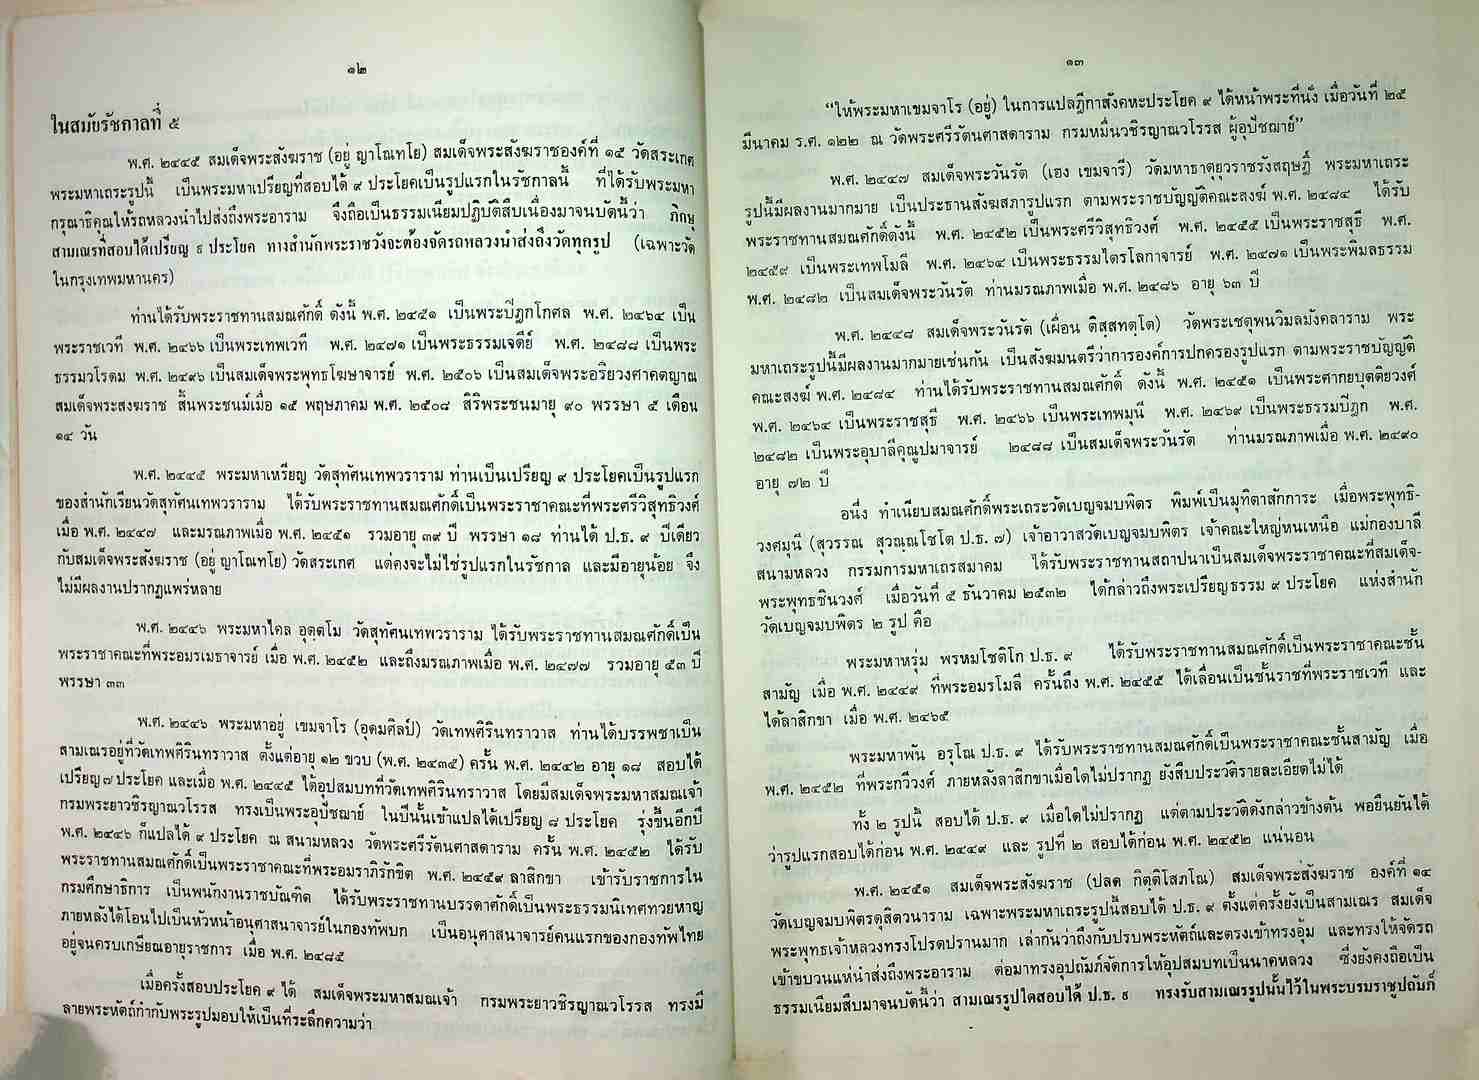 ๑๒
ในสมัยรัชกาลที่ ๕
พ.ศ. ๒๔๔๕ สมเด็จพระสังฆราช (อยู่ ญาโณทโย) สมเด็จพระสังฆราชองค์ที่ ๑๕ วัดสระเกศ
พระมหาเถระรูปนี้ เป็นพระมหาเปรียญที่สอบได้ ๙ ประโยคเป็นรูปแรกในรัชกาลนี้ ที่ได้รับพระมหา
กรุณาธิคุณให้รถหลวงนำไปส่งถึงพระอาราม จึงถือเป็นธรรมเนียมปฏิบัติสืบเนื่องมาจนบัดนี้ว่า ภิกษุ
สามเณรที่สอบได้เปรียญ ๙ ประโยค ทางสำนักพระราชวังจะต้องจัดรถหลวงนำส่งถึงวัดทุกรูป (เฉพาะวัด
ในกรุงเทพมหานคร)
ท่านได้รับพระราชทานสมณศักดิ์ ดังนี้ พ.ศ. ๒๔๕๑ เป็นพระปิฎกโกศล พ.ศ. ๒๔๖๔ เป็น
พระราชเวที พ.ศ. ๒๔๖๖ เป็นพระเทพเวที พ.ศ. ๒๔๗๑ เป็นพระธรรมเจดีย์ พ.ศ. ๒๔๘๘ เป็นพระ
ธรรมวโรดม พ.ศ. ๒๔๙๖ เป็นสมเด็จพระพุทธโฆษาจารย์ พ.ศ. ๒๕๐๖ เป็นสมเด็จพระอริยวงศาคตญาณ
สมเด็จพระสงฆราช สิ้นพระชนม์เมื่อ ๑๕ พฤษภาคม พ.ศ. ๒๕๐๘ สิริพระชนมายุ ๙๐ พรรษา ๕ เดือน
๑๔ วัน
พ.ศ. ๒๔๔๕ พระมหาเหรียญ วัดสุทัศนเทพวราราม ท่านเป็นเปรียญ ๙ ประโยคเป็นรูปแรก
ของสำนักเรียนวัดสุทัศนเทพวราราม ได้รับพระราชทานสมณศักดิ์เป็นพระราชาคณะที่พระศรีวิสุทธิวงศ์
เมื่อ พ.ศ. ๒๔๔๗ และมรณภาพเมื่อ พ.ศ. ๒๔๕๑ รวมอายุ ๓๙ ปี พรรษา ๑๘ ท่านได้ ป.ธ. ๙ ปีเดียว
กับสมเด็จพระสังฆราช (อยู่ ญาโณทโย) วัดสระเกศ แต่คงจะไม่ใช่รูปแรกในรัชกาล และมีอายุน้อย จึง
ไม่มีผลงานปรากฏแพร่หลาย
พ.ศ. ๒๔๔๖ พระมหาไคล อุตฺตโม วัดสุทัศนเทพวราราม ได้รับพระราชทานสมณศักดิ์เป็น
พระราชาคณะที่พระอมรเมธาจารย์ เมื่อ พ.ศ. ๒๔๕๒ และถึงมรณภาพเมื่อ พ.ศ. ๒๔๗๗ รวมอายุ ๕๓ ปี
พรรษา ๓๓
พ.ศ. ๒๔๔๖ พระมหาอยู่ เขมจาโร (อุดมศิลป์) วัดเทพศิรินทราวาส ท่านได้บรรพชาเป็น
สามเณรอยู่ที่วัดเทพศิรินทราวาส ตั้งแต่อายุ ๑๒ ขวบ (พ.ศ. ๒๔๓๕) ครั้น พ.ศ. ๒๔๔๒ อายุ ๑๘ สอบได้
เปรียญ ๗ ประโยค และเมื่อ พ.ศ. ๒๔๔๕ ได้อุปสมบทที่วัดเทพศิรินทราวาส โดยมีสมเด็จพระมหาสมณเจ้า
กรมพระยาวชิรญาณวโรรส ทรงเป็นพระอุปัชฌาย์ ในปีนั้นเข้าแปลได้เปรียญ ๘ ประโยค รุ่งขึ้นอีกปี
พ.ศ. ๒๔๔๖ ก็แปลได้ ๙ ประโยค ณ สนามหลวง วัดพระศรีรัตนศาสดาราม ครั้น พ.ศ. ๒๔๕๒ ได้รับ
พระราชทานสมณศักดิ์เป็นพระราชาคณะที่พระอมราภิรักขิต พ.ศ. ๒๔๕๙ ลาสิกขา เข้ารับราชการใน
กรมศึกษาธิการ เป็นพนักงานราชบัณฑิต ได้รับพระราชทานบรรดาศักดิ์เป็นพระธรรมนิเทศทวยหาญ
ภายหลังได้โอนไปเป็นหัวหน้าอนุศาสนาจารย์ในกองทัพบก เป็นอนุศาสนาจารย์คนแรกของกองทัพไทย
อยู่จนครบเกษียณอายุราชการ เมื่อ พ.ศ. ๒๔๘๕
เมื่อครั้งสอบประโยค ๙ ได้ สมเด็จพระมหาสมณเจ้า กรมพระยาวชิรญาณวโรรส ทรงมี
ลายพระหัตถ์กำกับพระรูปมอบให้เป็นที่ระลึกความว่า
๑๓
“ให้พระมหาเขมจาโร (อยู่) ในการแปลฎีกาสังคหะประโยค ๙ ได้หน้าพระที่นั่ง เมื่อวันที่ ๒๕
มีนาคม ร.ศ. ๑๒๒ ณ วัดพระศรีรัตนศาสดาราม กรมหมื่นวชิรญาณวโรรส ผู้อุปัชฌาย์”
พ.ศ. ๒๔๔๗ สมเด็จพระวันรัต (เฮง เขมจารี) วัดมหาธาตุยุวราชรังสฤษฎิ์ พระมหาเถระ
รูปนี้มีผลงานมากมาย เป็นประธานสังฆสภารูปแรก ตามพระราชบัญญัติคณะสงฆ์ พ.ศ. ๒๔๘๔ ได้รับ
พระราชทานสมณศักดิ์ดังนี้ พ.ศ. ๒๔๕๒ เป็นพระศรีวิสุทธิวงศ์ พ.ศ. ๒๔๕๕ เป็นพระราชสุธี พ.ศ.
๒๔๕๙ เป็นพระเทพโมลี พ.ศ. ๒๔๖๔ เป็นพระธรรมไตรโลกาจารย์ พ.ศ. ๒๔๗๑ เป็นพระพิมลธรรม
พ.ศ. ๒๔๘๒ เป็นสมเด็จพระวันรัต ท่านมรณภาพเมื่อ พ.ศ. ๒๔๘๖ อายุ ๖๓ ปี
พ.ศ. ๒๔๔๘ สมเด็จพระวันรัต (เผื่อน ติสฺสทตฺโต) วัดพระเชตุพนวิมลมังคลาราม พระ
มหาเถระรูปนี้มีผลงานมากมายเช่นกัน เป็นสังฆมนตรีว่าการองค์การปกครองรูปแรก ตามพระราชบัญญัติ
คณะสงฆ์ พ.ศ. ๒๔๘๔ ท่านได้รับพระราชทานสมณศักดิ์ ดังนี้ พ.ศ. ๒๔๕๑ เป็นพระศากยบุตติยวงศ์
พ.ศ. ๒๔๖๔ เป็นพระราชสุธี พ.ศ. ๒๔๖๖ เป็นพระเทพมุนี พ.ศ. ๒๔๖๙ เป็นพระธรรมปิฎก พ.ศ.
๒๔๘๒ เป็นพระอุบาลีคุณูปมาจารย์ ๒๔๘๘ เป็นสมเด็จพระวันรัต ท่านมรณภาพเมื่อ พ.ศ. ๒๔๙๐
อายุ ๗๒ ปี
อนึ่ง ทำเนียบสมณศักดิ์พระเถระวัดเบญจมบพิตร พิมพ์เป็นมุทิตาสักการะ เมื่อพระพุทธิ-
วงศมุนี (สุวรรณ สุวณฺณโชโต ป.ธ. ๗) เจ้าอาวาสวัดเบญจมบพิตร เจ้าคณะใหญ่หนเหนือ แม่กองบาลี
สนามหลวง กรรมการมหาเถรสมาคม ได้รับพระราชทานสถาปนาเป็นสมเด็จพระราชาคณะที่สมเด็จ-
พระพุทธชินวงศ์ เมื่อวันที่ ๕ ธันวาคม ๒๕๓๒ ได้กล่าวถึงพระเปรียญธรรม ๙ ประโยค แห่งสำนัก
วัดเบญจมบพิตร ๒ รูป คือ
พระมหาหรุ่ม พรหมโชติโก ป.ธ. ๙ ได้รับพระราชทานสมณศักดิ์เป็นพระราชาคณะชั้น
สามัญ เมื่อ พ.ศ. ๒๔๔๙ ที่พระอมรโมลี ครั้นถึง พ.ศ. ๒๔๕๕ ได้เลื่อนเป็นชั้นราชที่พระราชเวที และ
ได้ลาสิกขา เมื่อ พ.ศ. ๒๔๖๕
พระมหาพัน อรุโณ ป.ธ. ๙ ได้รับพระราชทานสมณศักดิ์เป็นพระราชาคณะชั้นสามัญ เมื่อ
พ.ศ. ๒๔๕๒ ที่พระกวีวงศ์ ภายหลังลาสิกขาเมื่อใดไม่ปรากฏ ยังสืบประวัติรายละเอียดไม่ได้
ทั้ง ๒ รูปนี้ สอบได้ ป.ธ. ๙ เมื่อใดไม่ปรากฏ แต่ตามประวัติดังกล่าวข้างต้น พอยืนยันได้
ว่ารูปแรกสอบได้ก่อน พ.ศ. ๒๔๔๙ และ รูปที่ ๒ สอบได้ก่อน พ.ศ. ๒๔๕๒ แน่นอน
พ.ศ. ๒๔๕๑ สมเด็จพระสังฆราช (ปลด กิตฺติโสภโณ) สมเด็จพระสังฆราช องค์ที่ ๑๔
วัดเบญจมบพิตรดุสิตวนาราม เฉพาะพระมหาเถระรูปนี้สอบได้ ป.ธ. ๙ ตั้งแต่ครั้งยังเป็นสามเณร สมเด็จ
พระพุทธเจ้าหลวงทรงโปรดปรานมาก เล่ากันว่าถึงกับปรบพระหัตถ์และตรงเข้าทรงอุ้ม และทรงให้จัดรถ
เข้าขบวนแห่นำส่งถึงพระอาราม ต่อมาทรงอุปถัมภ์จัดการให้อุปสมบทเป็นนาคหลวง ซึ่งยังคงถือเป็น
ธรรมเนียมสืบมาจนบัดนี้ว่า สามเณรรูปใดสอบได้ ป.ธ. ๙ ทรงรับสามเณรรูปนั้นไว้ในพระบรมราชูปถัมภ์